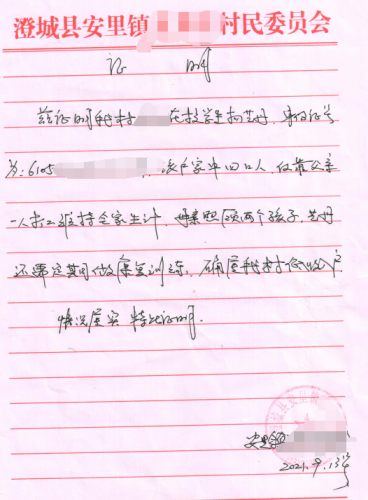 澄城县安里镇 村民委员会
证 明
兹证明我村 在校学生 身份证号
为:6105 ,该户家中四口人,仅靠父亲
一人打工维持全家生计,母亲照顾两个孩子,
还需定期做康复训练,确属我村低收入户
情况属实 特此证明.
安里镇
2021.9.13号